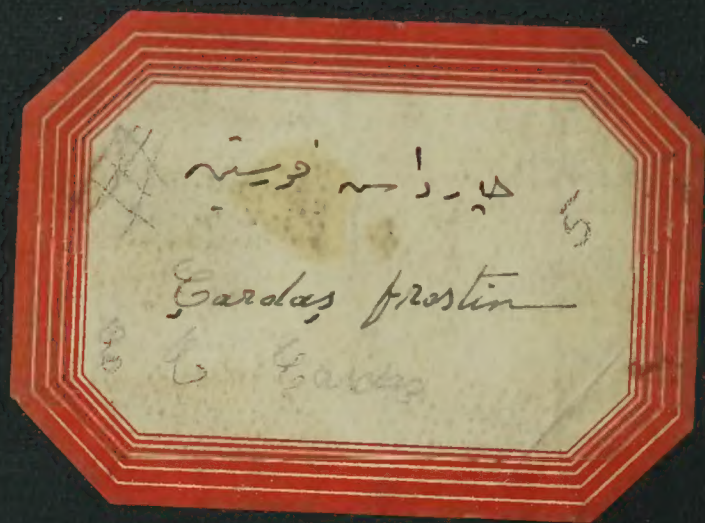 چارداس فرستین
5
Çardaş frostin
Çardaş